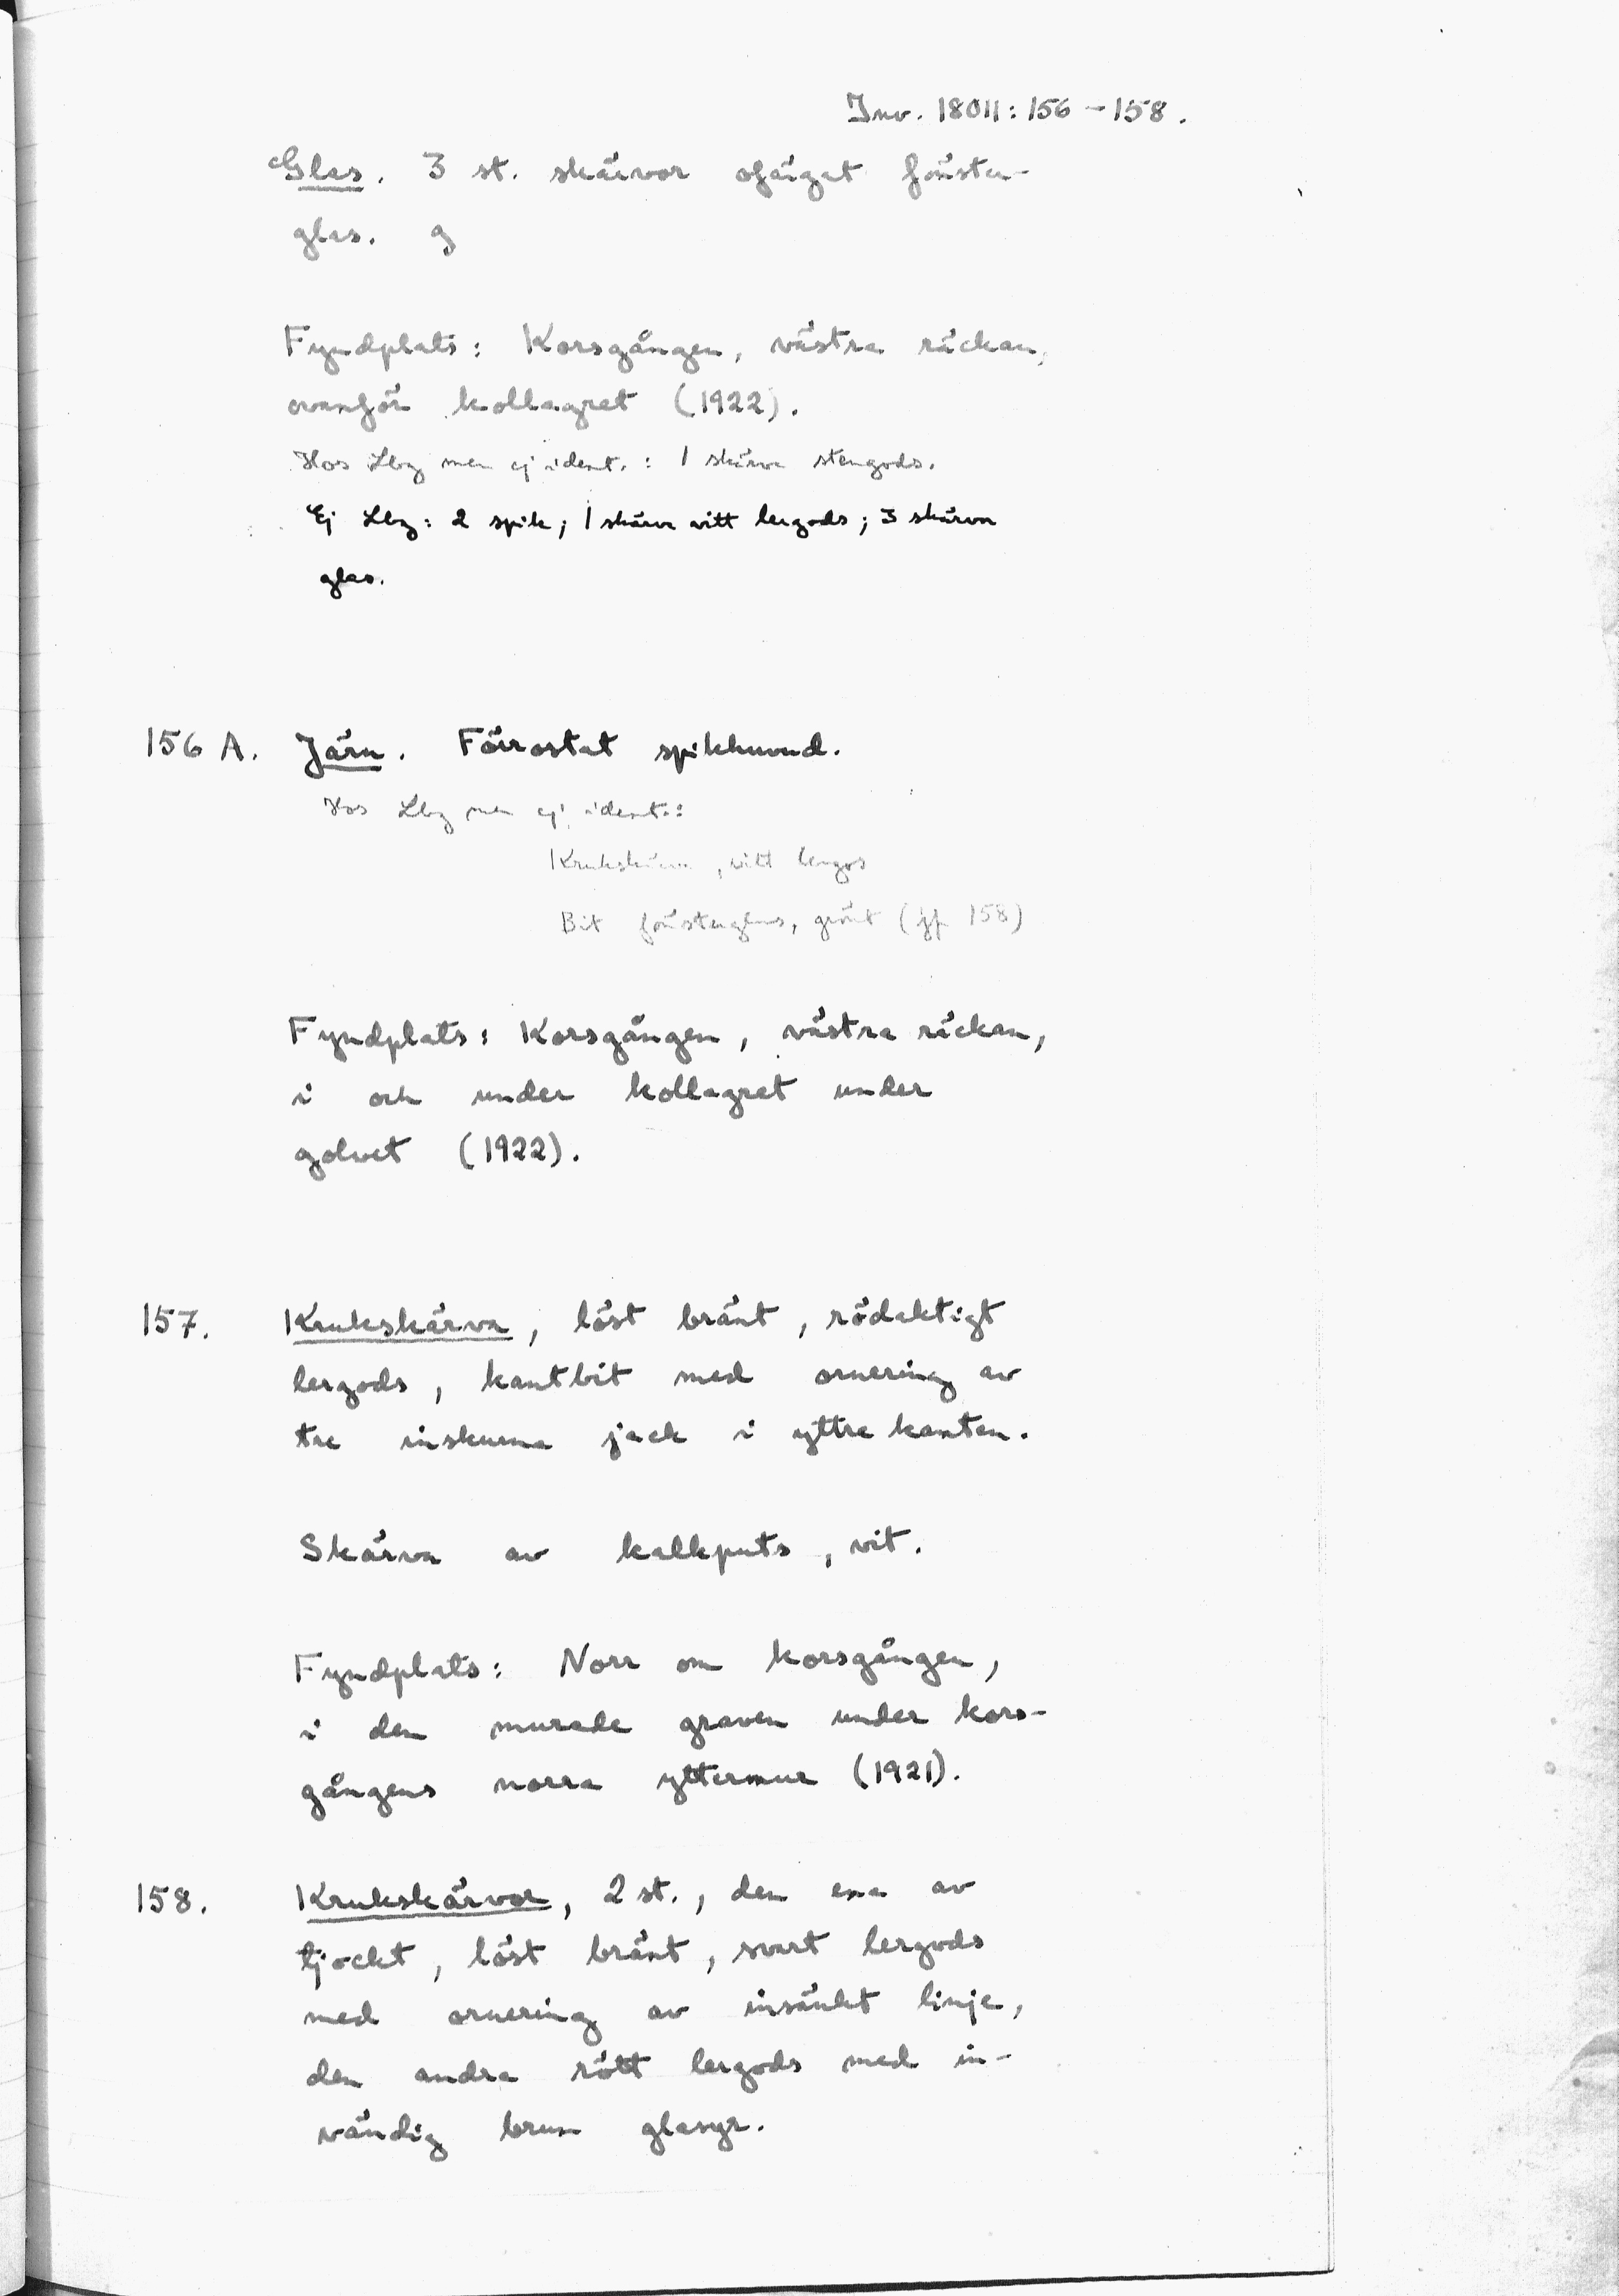 Inv. 18011:156-158.
Glas. 3 st. skärvor ofärgat fönster-
glas. g
Fyndplats: Korsgången, västra räckan,
ovanför kollagret (1922).
Hos Lbg men ej ident.: 1 skärva stengods.
Ej Lbg: 2 spik; 1 skärva vitt lergods; 3 skärvor
glas.
156 A. Järn. Förrostat spikhuvud.
Hos Lbg men ej ident.:
Krukskärva, vitt lergos
Bit fönsterglas, grönt (jf 158)
Fyndplats: Korsgången, västra räckan,
i och under kollagret under
golvet (1922).
157. Krukskärva, löst bränt, rödaktigt
lergods, kantbit med ornering av
tre inskurna jack i yttre kanten.
Skärva av kalkputs, vit.
Fyndplats: Norr om korsgången,
i den murade graven under kors-
gångens norra yttermur (1921).
158. Krukskärvor, 2 st., den ena av
tjockt, löst bränt, svart lergods
med ornering av insänkt linje,
den andra rött lergods med in-
vändig brun glasyr.